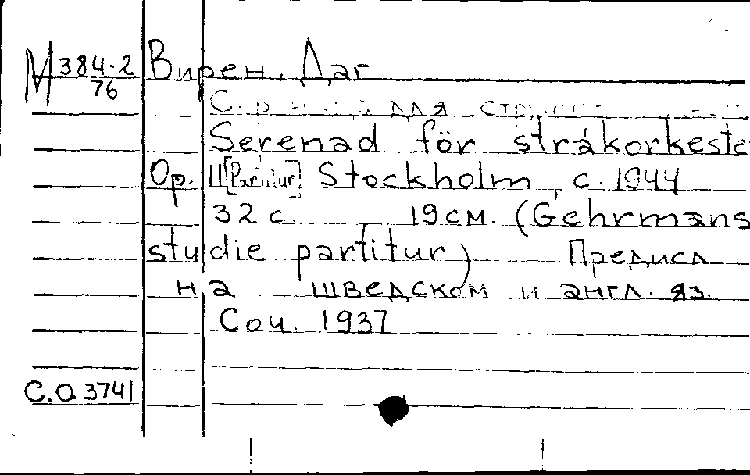 М 384-2 Вирен, Даг
76
для
Serenad för stråkorkeste
Op. 11 [Partitur] Stockholm, c. 1944
32 c 19 см. (Gehrmans
studie partitur) Предисл
на шведском и англ. яз.
Соч. 1937
C.O 3741